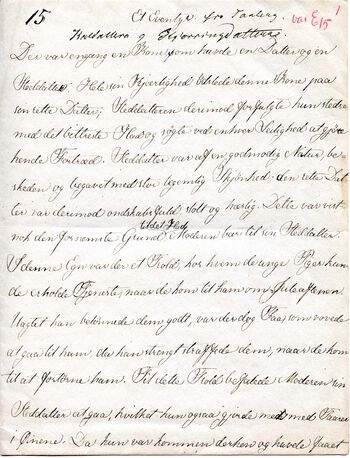 15
Et Eventyr fra Tanberg.
var E15
1
Steddatteren og
Der var engang en Kone, som havde en Datter og en
Steddatter. Hele sin Kjerlighed ødslede denne Kone paa
sin rette Datter; Steddatteren derimod forfulgte hun stedse
med det bittreste Had og søgte ved enhver Leilighed at gjøre
hende Fortræd. Steddatter var af en godmodig Natur, be-
skeden og begavet med stor legemlig Skjønhed; den rette Dat-
ter var derimod ondskabsfuld, stolt og hæslig. Dette var vist-
nok den fornemste Grund Moderen bar til sin Steddatter.
til det Had
I denne Egn var der et Trold, hos hvem de unge Piger kun-
de erholde Tjeneste, naar de kom til ham om Juleaftenen.
Uagtet han belønnede dem godt, var der dog Faa, som vovede
at gaa til ham, da han strengt straffede dem, naar de kom
til at fortørne ham. Til dette Trold befalede Moderen sin
Steddatter at gaa, hvilket hun ogsaa gjorde med Taarer
i Øinene. Da hun var kommen derhen og havde faaet